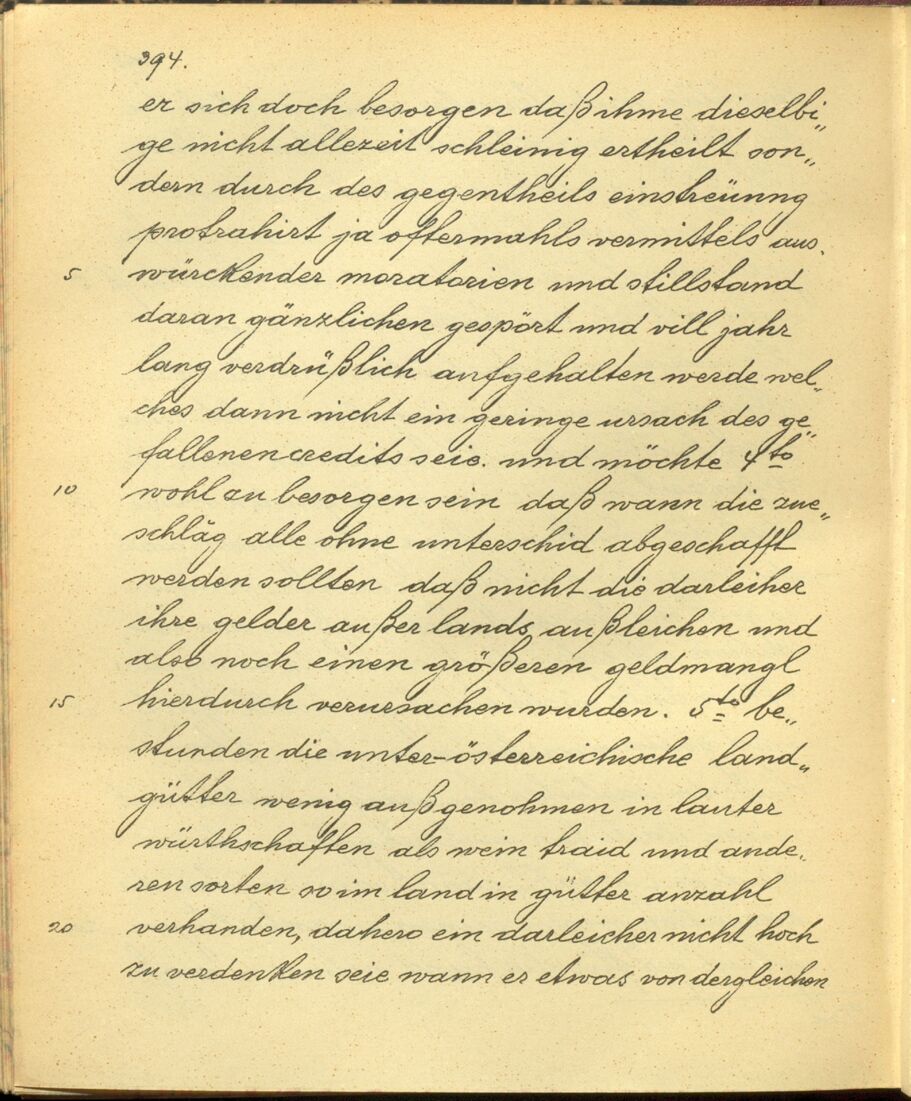 394.
er sich doch besorgen daß ihme dieselbi„
ge nicht allezeit schleinig ertheilt son„
dern durch des gegentheils einstreüung
protrahirt ja offtermahls vermittels aus„
5 würckender moratorien und stillstand
daran gänzlichen gespört und vill jahr
lang verdrüßlich aufgehalten werde wel„
ches dann nicht ein geringe ursach des ge„
fallenen credits seie. und möchte 4to
10 wohl zu besorgen sein daß wann die zue„
schläg alle ohne unterschid abgeschafft
werden sollten daß nicht die darleiher
ihre gelder außer lands außleichen und
also noch einen größeren geldmangl
15 hierdurch verursachen wurden. 5to be„
stunden die unter-österreichische land„
gütter wenig außgenohmen in lauter
würthschafften als wein traid und ande„
ren sorten so im land in gütter anzahl
20 verhanden, dahero ein darleicher nicht hoch
zu verdenken seie wann er etwas von dergleichen